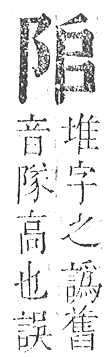 堆字之譌舊
音隊高也誤